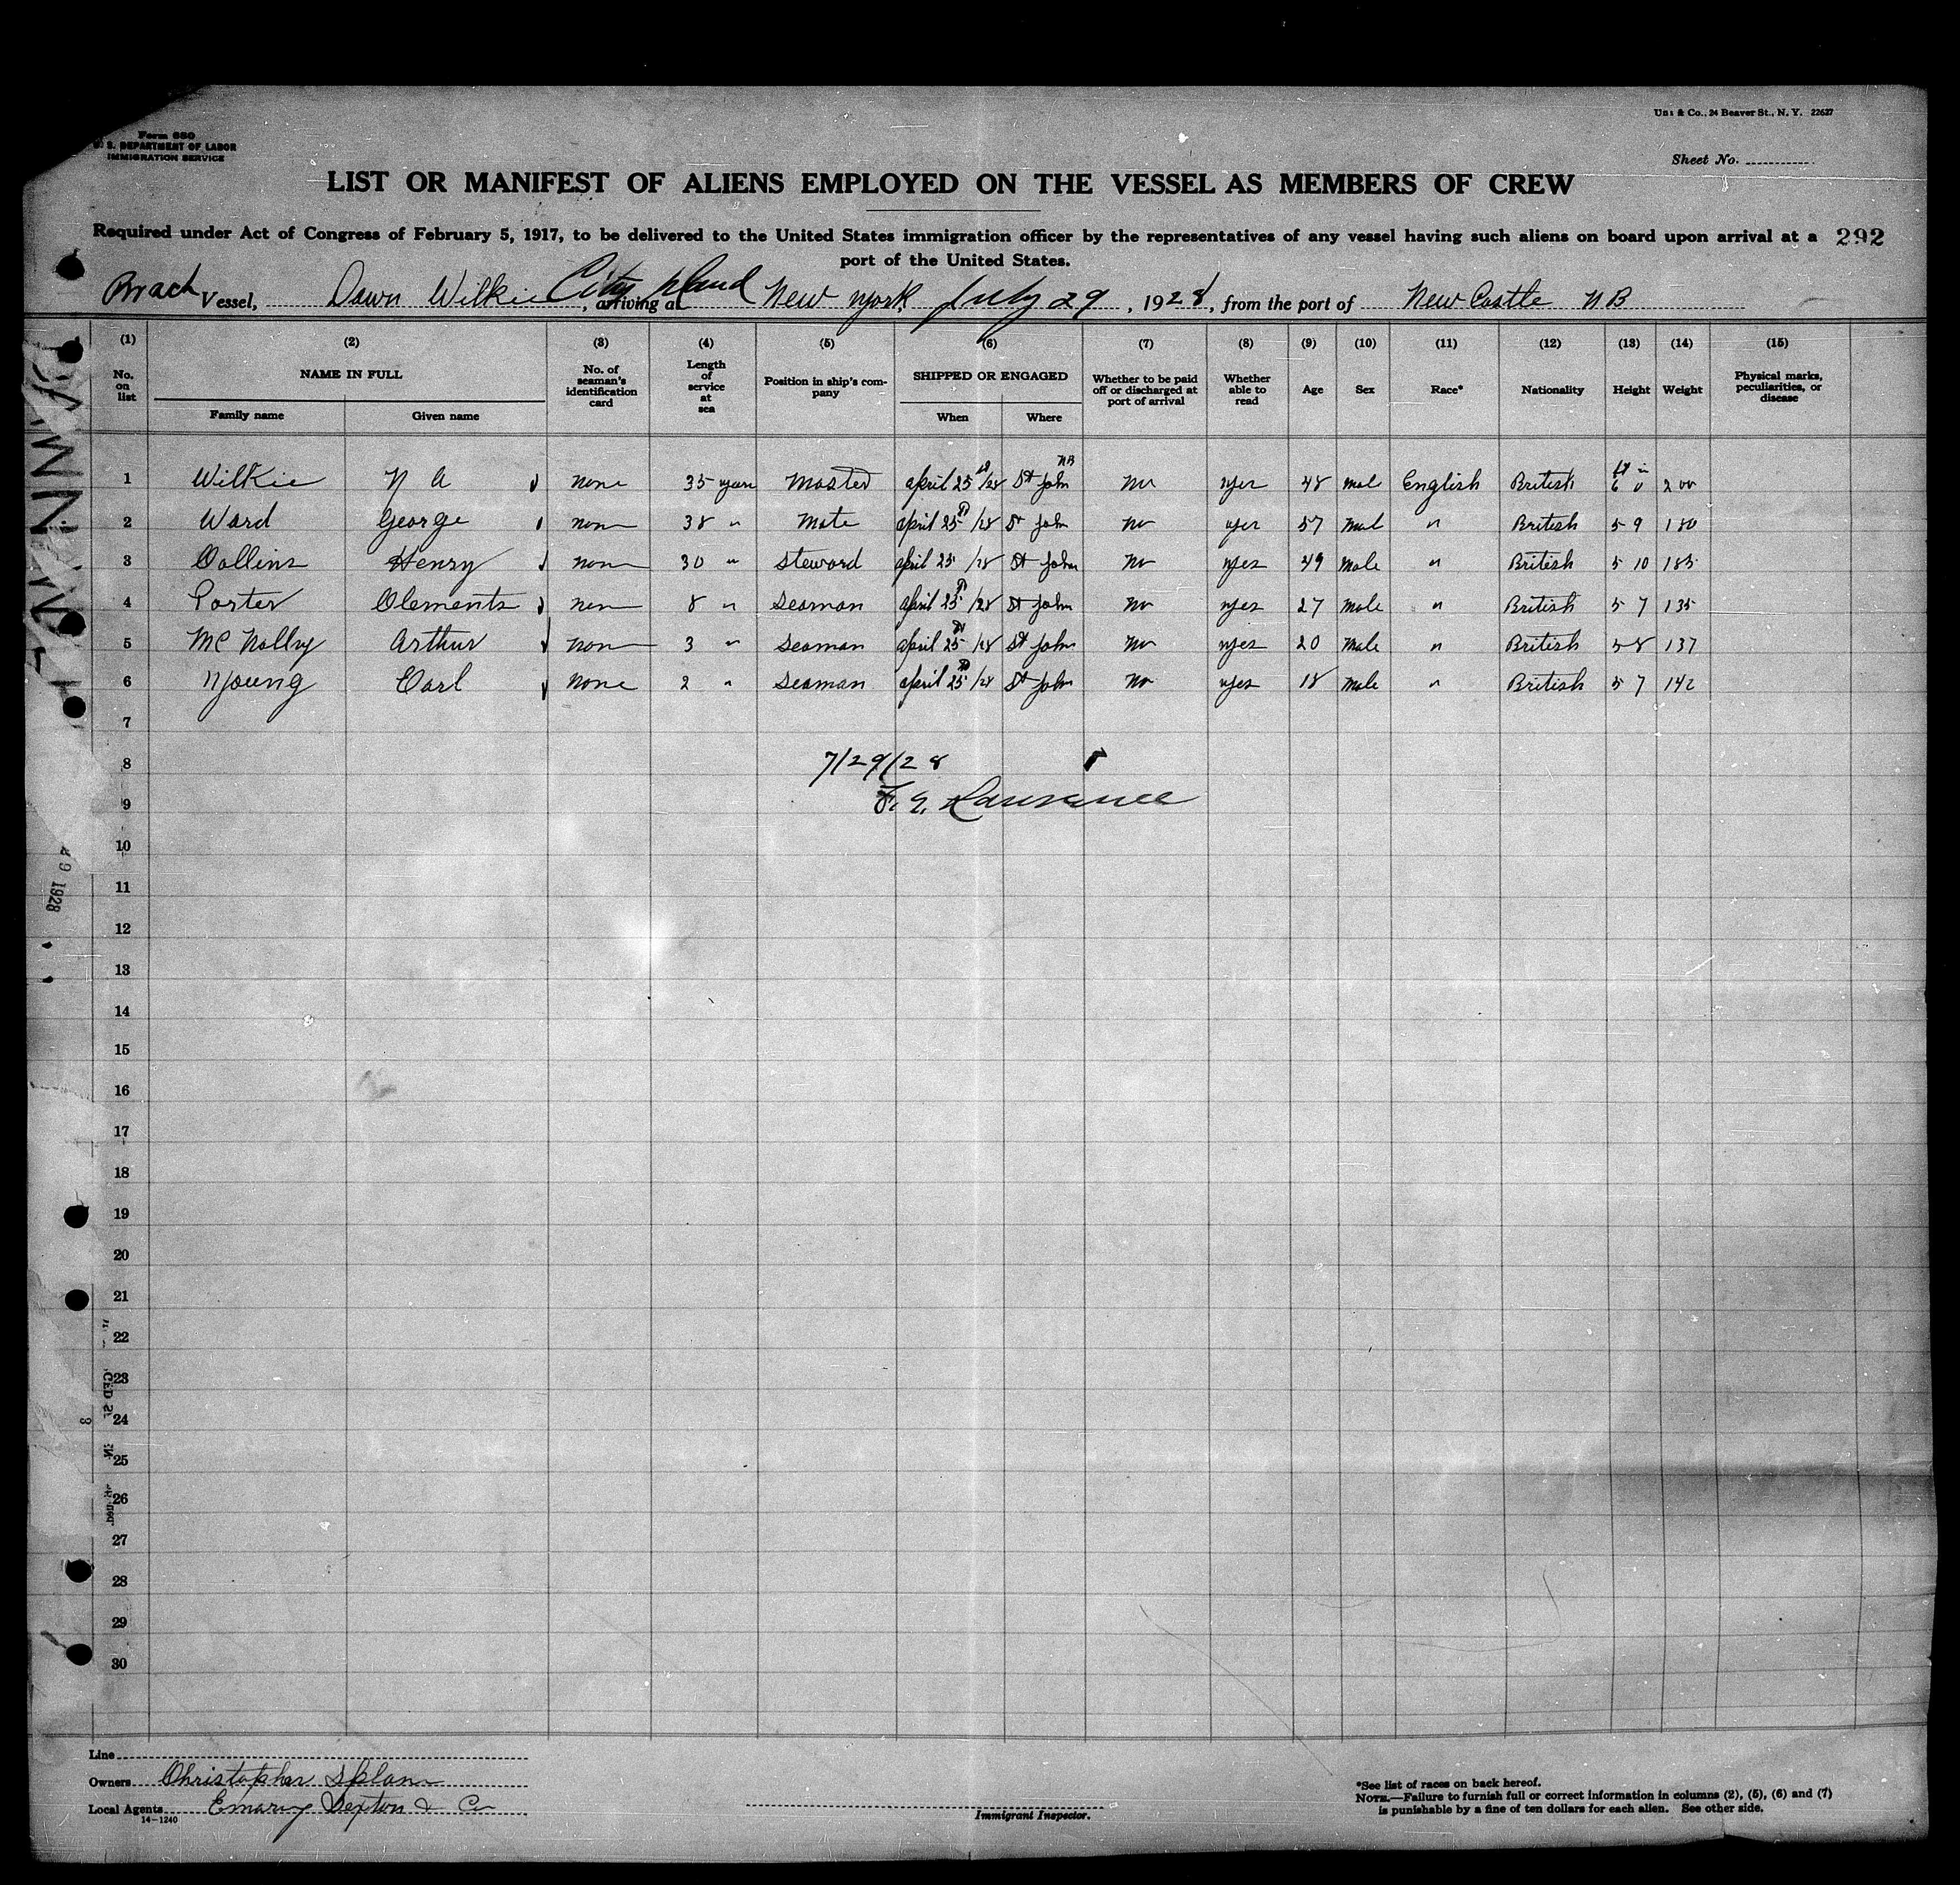 Form 680
U. S. DEPARTMENT OF LABOR
IMMIGRATION SERVICE
& Co., 24 Beaver St., N. Y. 22627
Sheet No.
LIST OR MANIFEST OF ALIENS EMPLOYED ON THE VESSEL AS MEMBERS OF CREW
Required under Act of Congress of February 5, 1917, to be delivered to the United States immigration officer by the representatives of any vessel having such aliens on board upon arrival at a 292
port of the United States.
Vessel, Dawn Wilkie, arriving at City Island New York July 29, 1928, from the port of New Castle N B
(1) (2) (3) (4) (5) (6) (7) (8) (9) (10) (11) (12) (13) (14) (15)
No. on list NAME IN FULL Family name Given name No. of seaman's identification card Length of service at sea Position in ship's company SHIPPED OR ENGAGED When Where Whether to be paid off or discharged at port of arrival Whether able to read Age Sex Race* Nationality Height Weight Physical marks, peculiarities, or disease
1 Wilkie N A none 35 years Master April 25 /28 St John NB No yes 48 male English British 6 ft 0 in 200
2 Ward George none 38 " Mate April 25 /28 St John No yes 57 Male " British 5 9 180
3 Collins Henry none 30 " Steward April 25 /28 St John No yes 49 Male " British 5 10 185
4 Porter Clements none 8 " Seaman April 25 /28 St John No yes 27 Male " British 5 7 135
5 Mc Nolby Arthur none 3 " Seaman April 25 /28 St John No yes 20 Male " British 5 8 137
6 Young Earl none 2 " Seaman April 25 /28 St John No yes 18 Male " British 5 7 142
7
8 7/29/28
9 F. E. Lawrence
10
11
9 1928
12
13
14
15
16
17
18
19
20
21
22
23
24
25
26
27
28
29
30
Line
Owners Christopher Splane
Local Agents Sexton & Co
14-1240
Immigrant Inspector.
*See list of races on back hereof.
NOTE.—Failure to furnish full or correct information in columns (2), (5), (6) and (7)
is punishable by a fine of ten dollars for each alien. See other side.